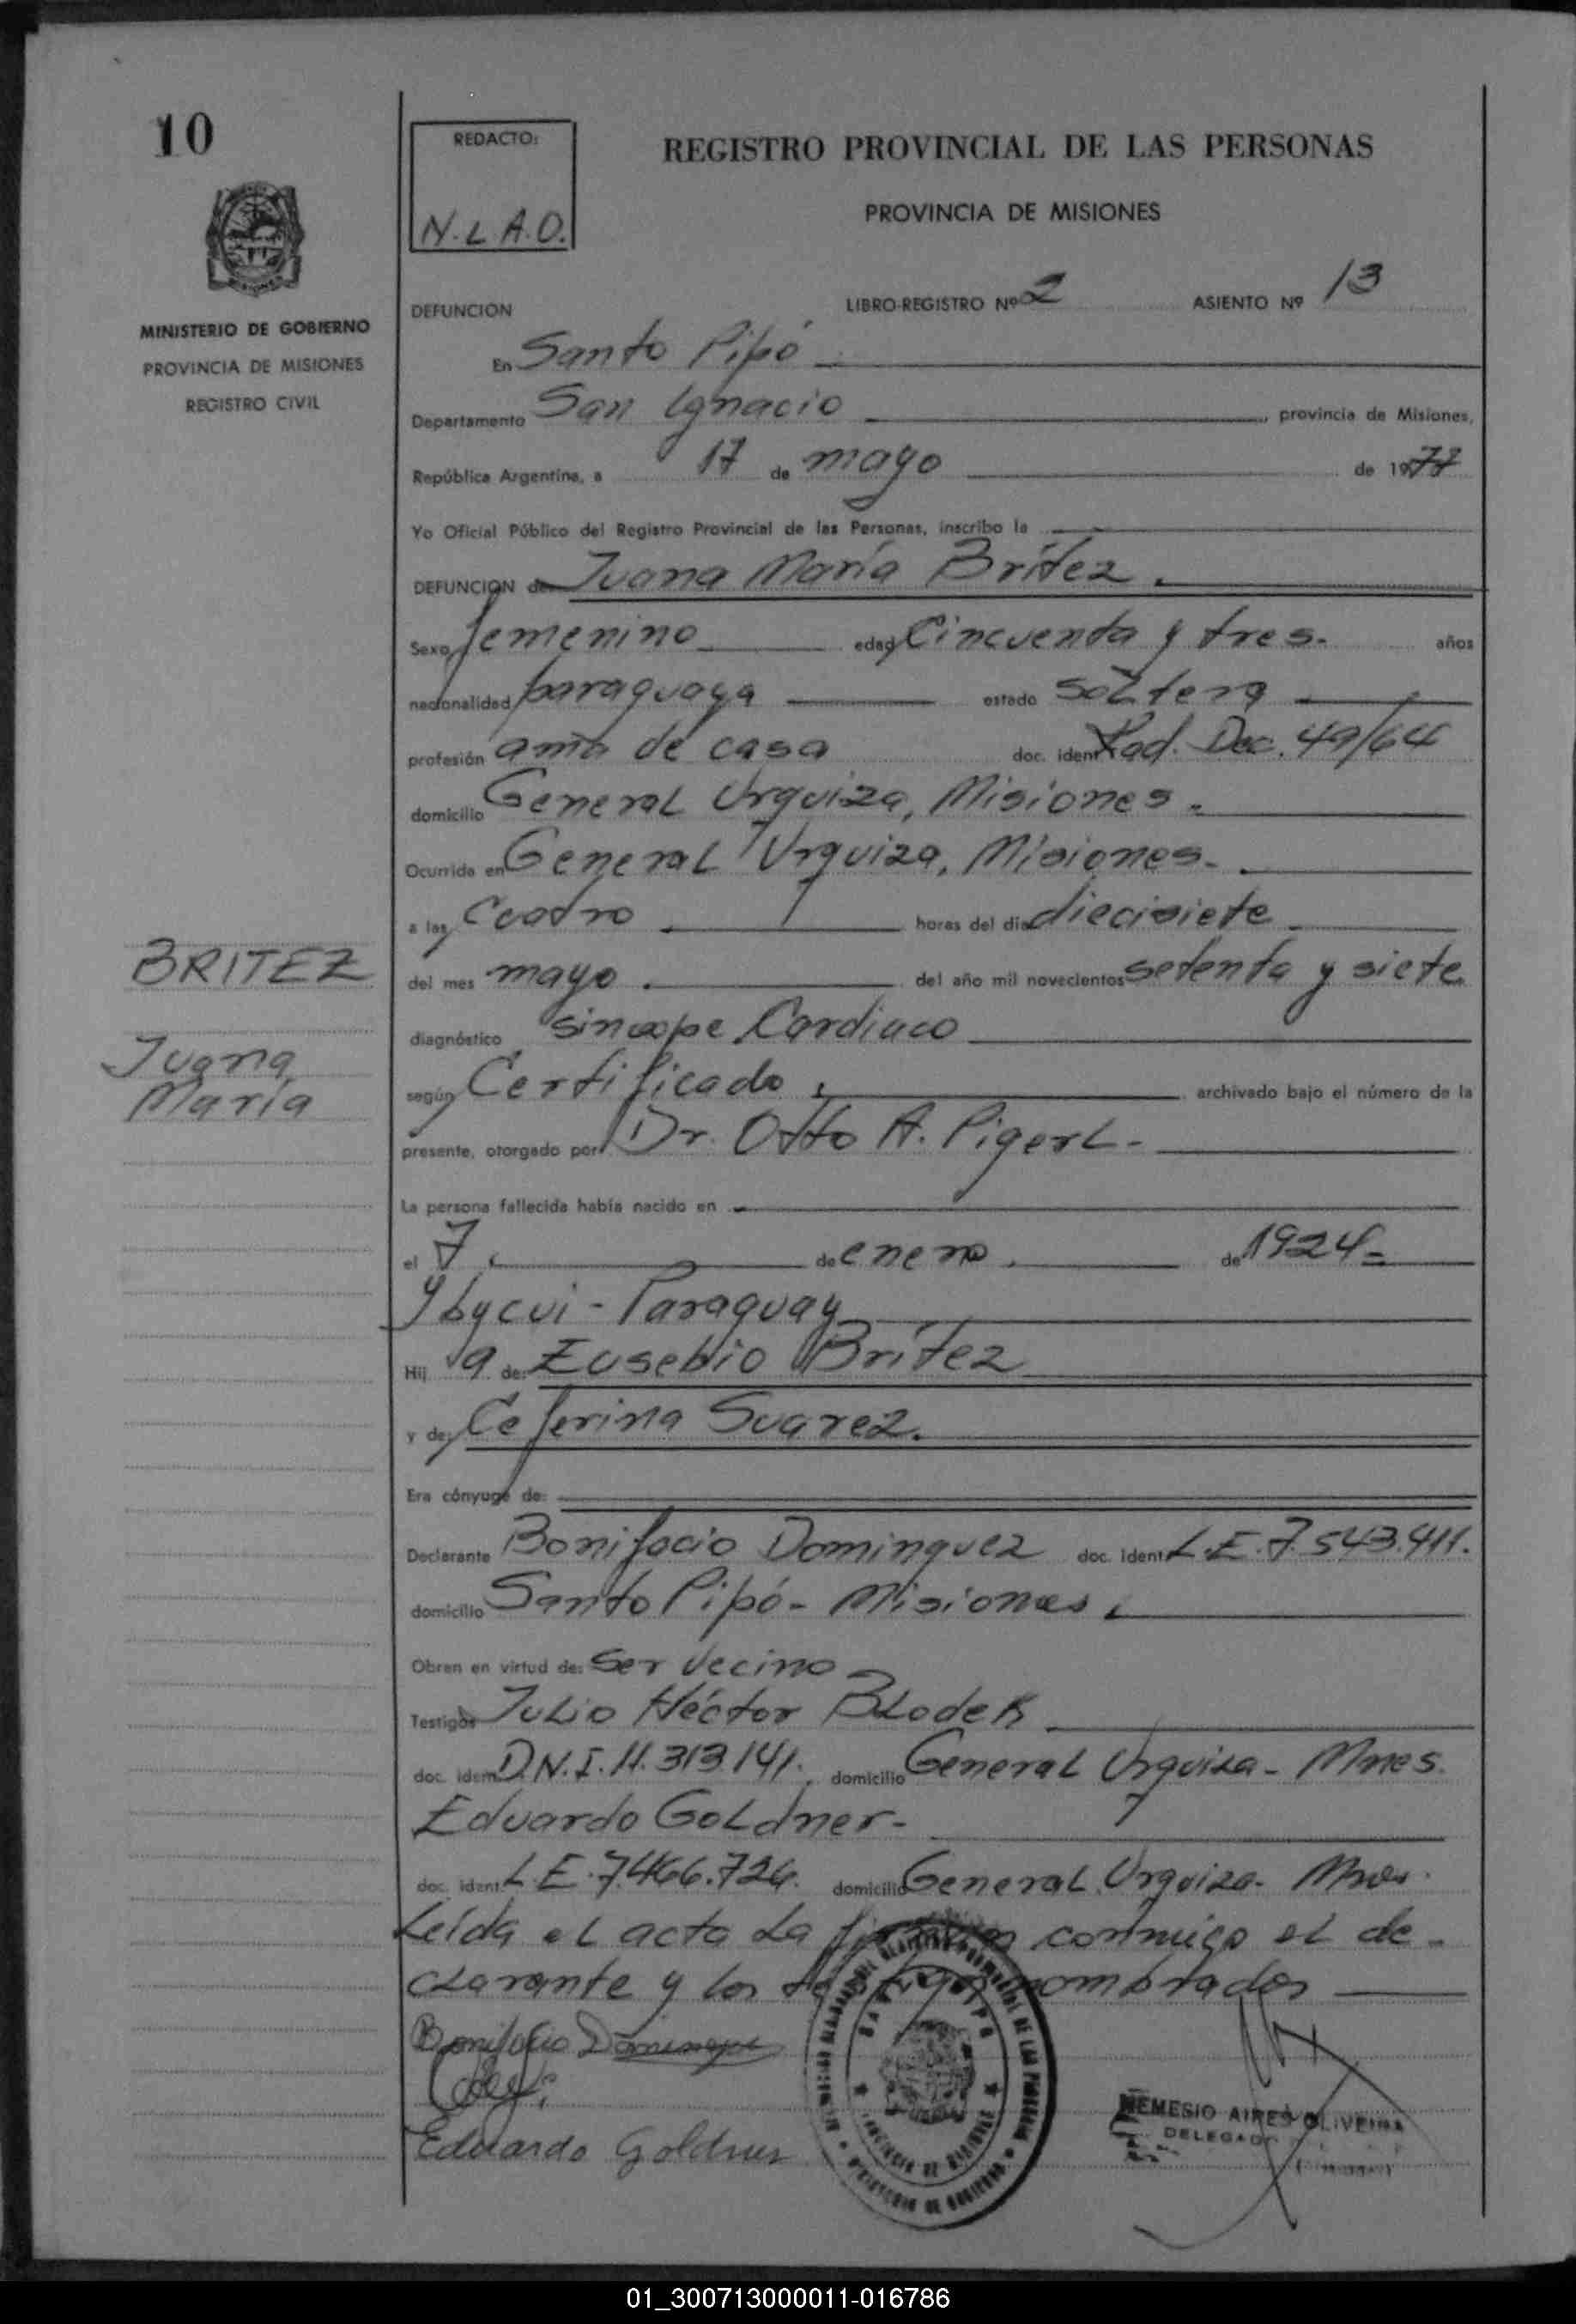 10
REDACTO:
N.L.A.O.
REGISTRO PROVINCIAL DE LAS PERSONAS
PROVINCIA DE MISIONES
MINISTERIO DE GOBIERNO
PROVINCIA DE MISIONES
REGISTRO CIVIL
DEFUNCION LIBRO-REGISTRO Nº 2 ASIENTO Nº 13
En Santo Pipó
Departamento San Ignacio, provincia de Misiones,
República Argentina, a 17 de mayo de 1977
Yo Oficial Público del Registro Provincial de las Personas, inscribo la
DEFUNCION de Juana María Britez.
Sexo femenino edad Cincuenta y tres. años
nacionalidad paraguaya estado soltera
profesión ama de casa doc. ident. Rad. Dec. 49/64
domicilio General Urquiza, Misiones.
Ocurrida en General Urquiza, Misiones.
a las Cuatro horas del día diecisiete
BRITEZ
del mes mayo. del año mil novecientos setenta y siete
diagnóstico sincope Cardiaco
Juana
María
según Certificado, archivado bajo el número de la
presente, otorgado por Dr. Otto A. Pigerl.
La persona fallecida había nacido en
el 7. de enero. de 1924=
Ybycui - Paraguay
Hij a de: Eusebio Britez
y de: Ceferina Suarez.
Era cónyuge de:
Declarante Bonifacio Dominguez doc. ident. L.E. 7.543.411.
domicilio Santo Pipó - Misiones.
Obran en virtud de: Ser vecino
Testigos Julio Héctor Blodek
doc. ident. D.N.I. 11.313.141. domicilio General Urquiza - Mnes.
Eduardo Goldner-
doc. ident. L.E. 7.466.726. domicilio General Urquiza - Mnes.
Leída el acta la firman conmigo el de-
clarante y los testigos nombrados
Bonifacio Dominguez
Eduardo Goldner
NEMESIO AIRES OLIVEIRA
DELEGADO
01_300713000011-016786